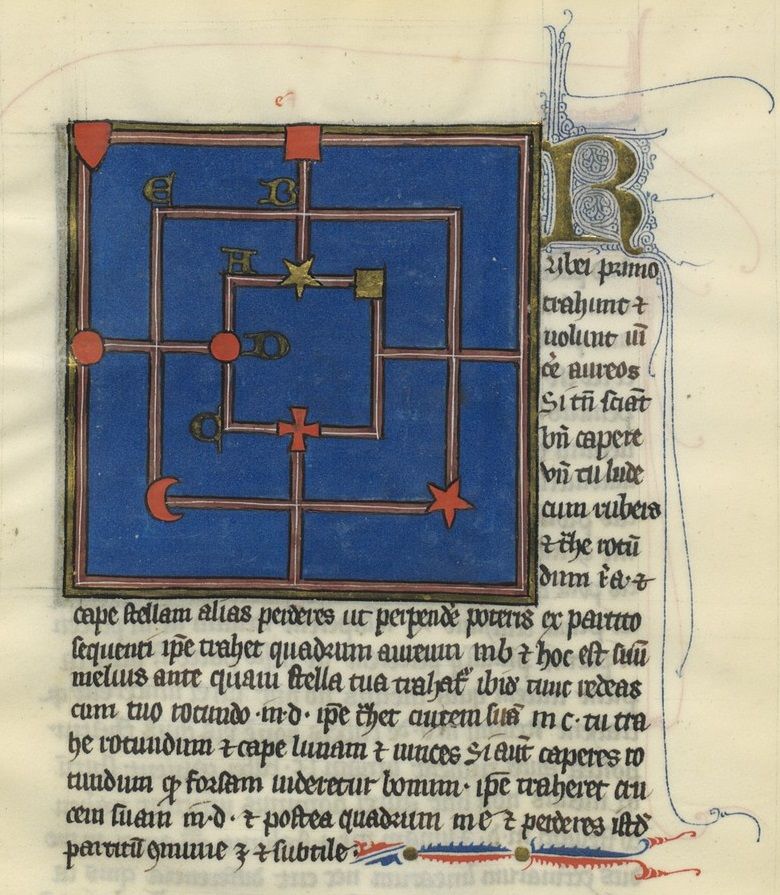 e
E B
H
D
C
Rubei primo
trahunt ⁊
uolunt uī
cē aureos
Si tn̄ sciāt
bn̄ capere
vn̄ tu lude
cum rubeis
⁊ t̄he rotū
dum ī a· ⁊
cape stellam alias perderes ut perpendē poteris ex partito
sequenti ip̄e trahet quadrum aureum in b ⁊ hoc est suū
melius ante quam stella tua trahat᷑ ibid̄ tunc redeas
cum tuo rotundo ·in·d· ip̄e t̄het crucem suā in c· tu tra
he rotundum ⁊ cape lunam ⁊ uinces Si aut̄ caperes ro
tundum ꝙ forsam uideretur bonum· ip̄e traheret cru
cem suam in·d· ⁊ postea quadrum in e ⁊ perderes istd̄
partitū ꝯmune ꝫ ⁊ subtile·